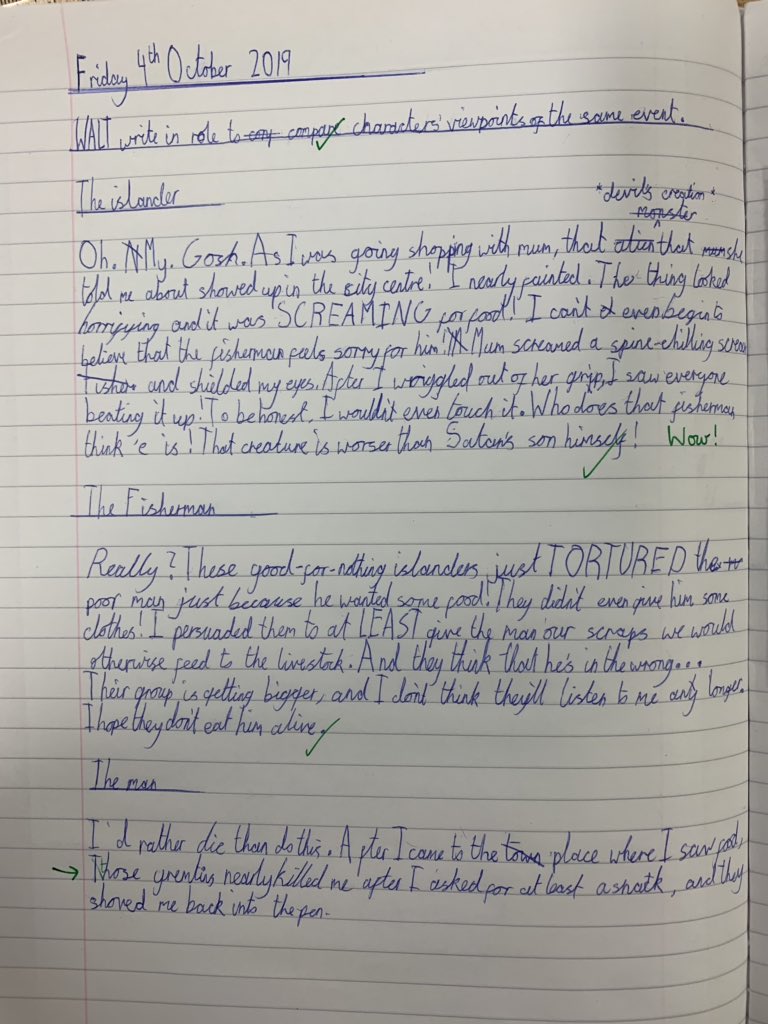 Friday 4th October 2019
WALT write in role to copy compare characters' viewpoints of the same event.
The islander
*devil's creation*
monster
Oh. My. Gosh. As I was going shopping with mum, that alien that mum she
told me about showed up in the city centre! I nearly fainted. The thing looked
horrifying and it was SCREAMING for food! I can't even begin to
believe that the fisherman feels sorry for him! Mum screamed a spine-chilling scream
Fisher and shielded my eyes. After I wriggled out of her grip, I saw everyone
beating it up! To be honest, I wouldn't even touch it. Who does that fisherman
think 'e is! That creature is worser than Satan's son himself! Wow!
The Fisherman
Really? These good-for-nothing islanders just TORTURED the
poor man just because he wanted some food! They didn't even give him some
clothes! I persuaded them to at LEAST give the man our scraps we would
otherwise feed to the livestock. And they think that he's in the wrong...
Their group is getting bigger, and I don't think they'll listen to me any longer.
I hope they don't eat him alive.
The man
I'd rather die than do this. After I came to the town place where I saw food,
→ Those gremlins nearly killed me after I asked for at least a snack, and they
shoved me back into the pen.